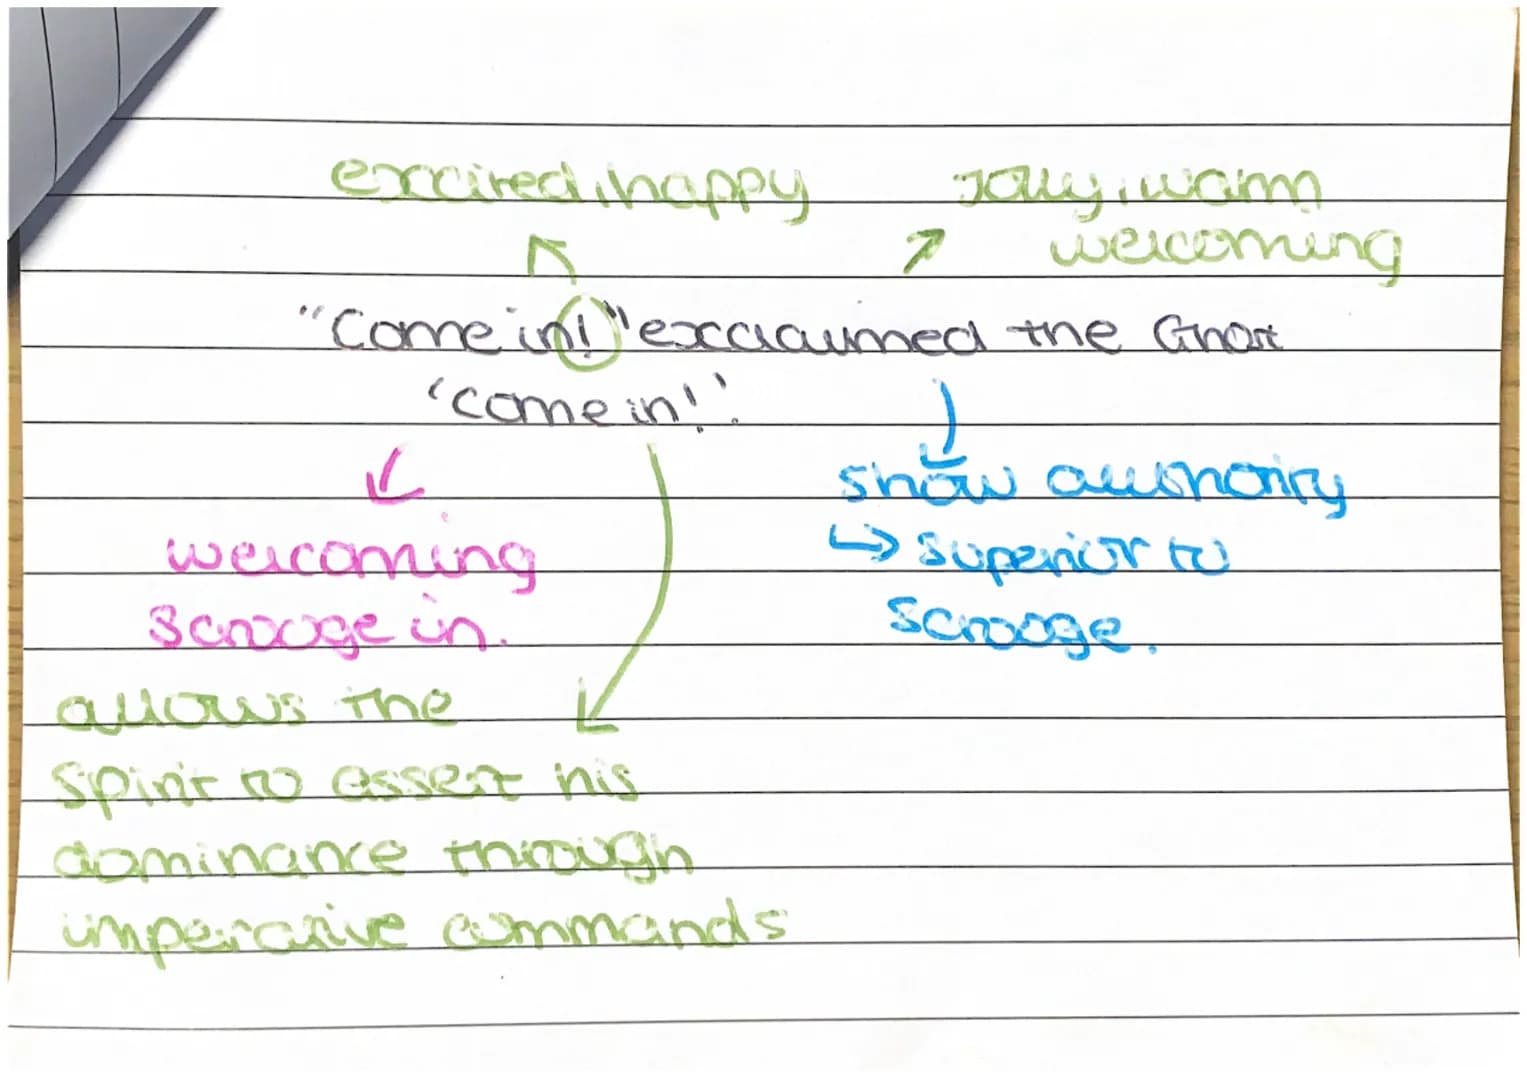 excited, happy
Jolly, warm,
welcoming
"Come in!" exclaimed the Ghost
'come in!'.
show authority
↳ superior to
scrooge.
welcoming
scrooge in.
allows the
spirit to assert his
dominance through
imperative commands